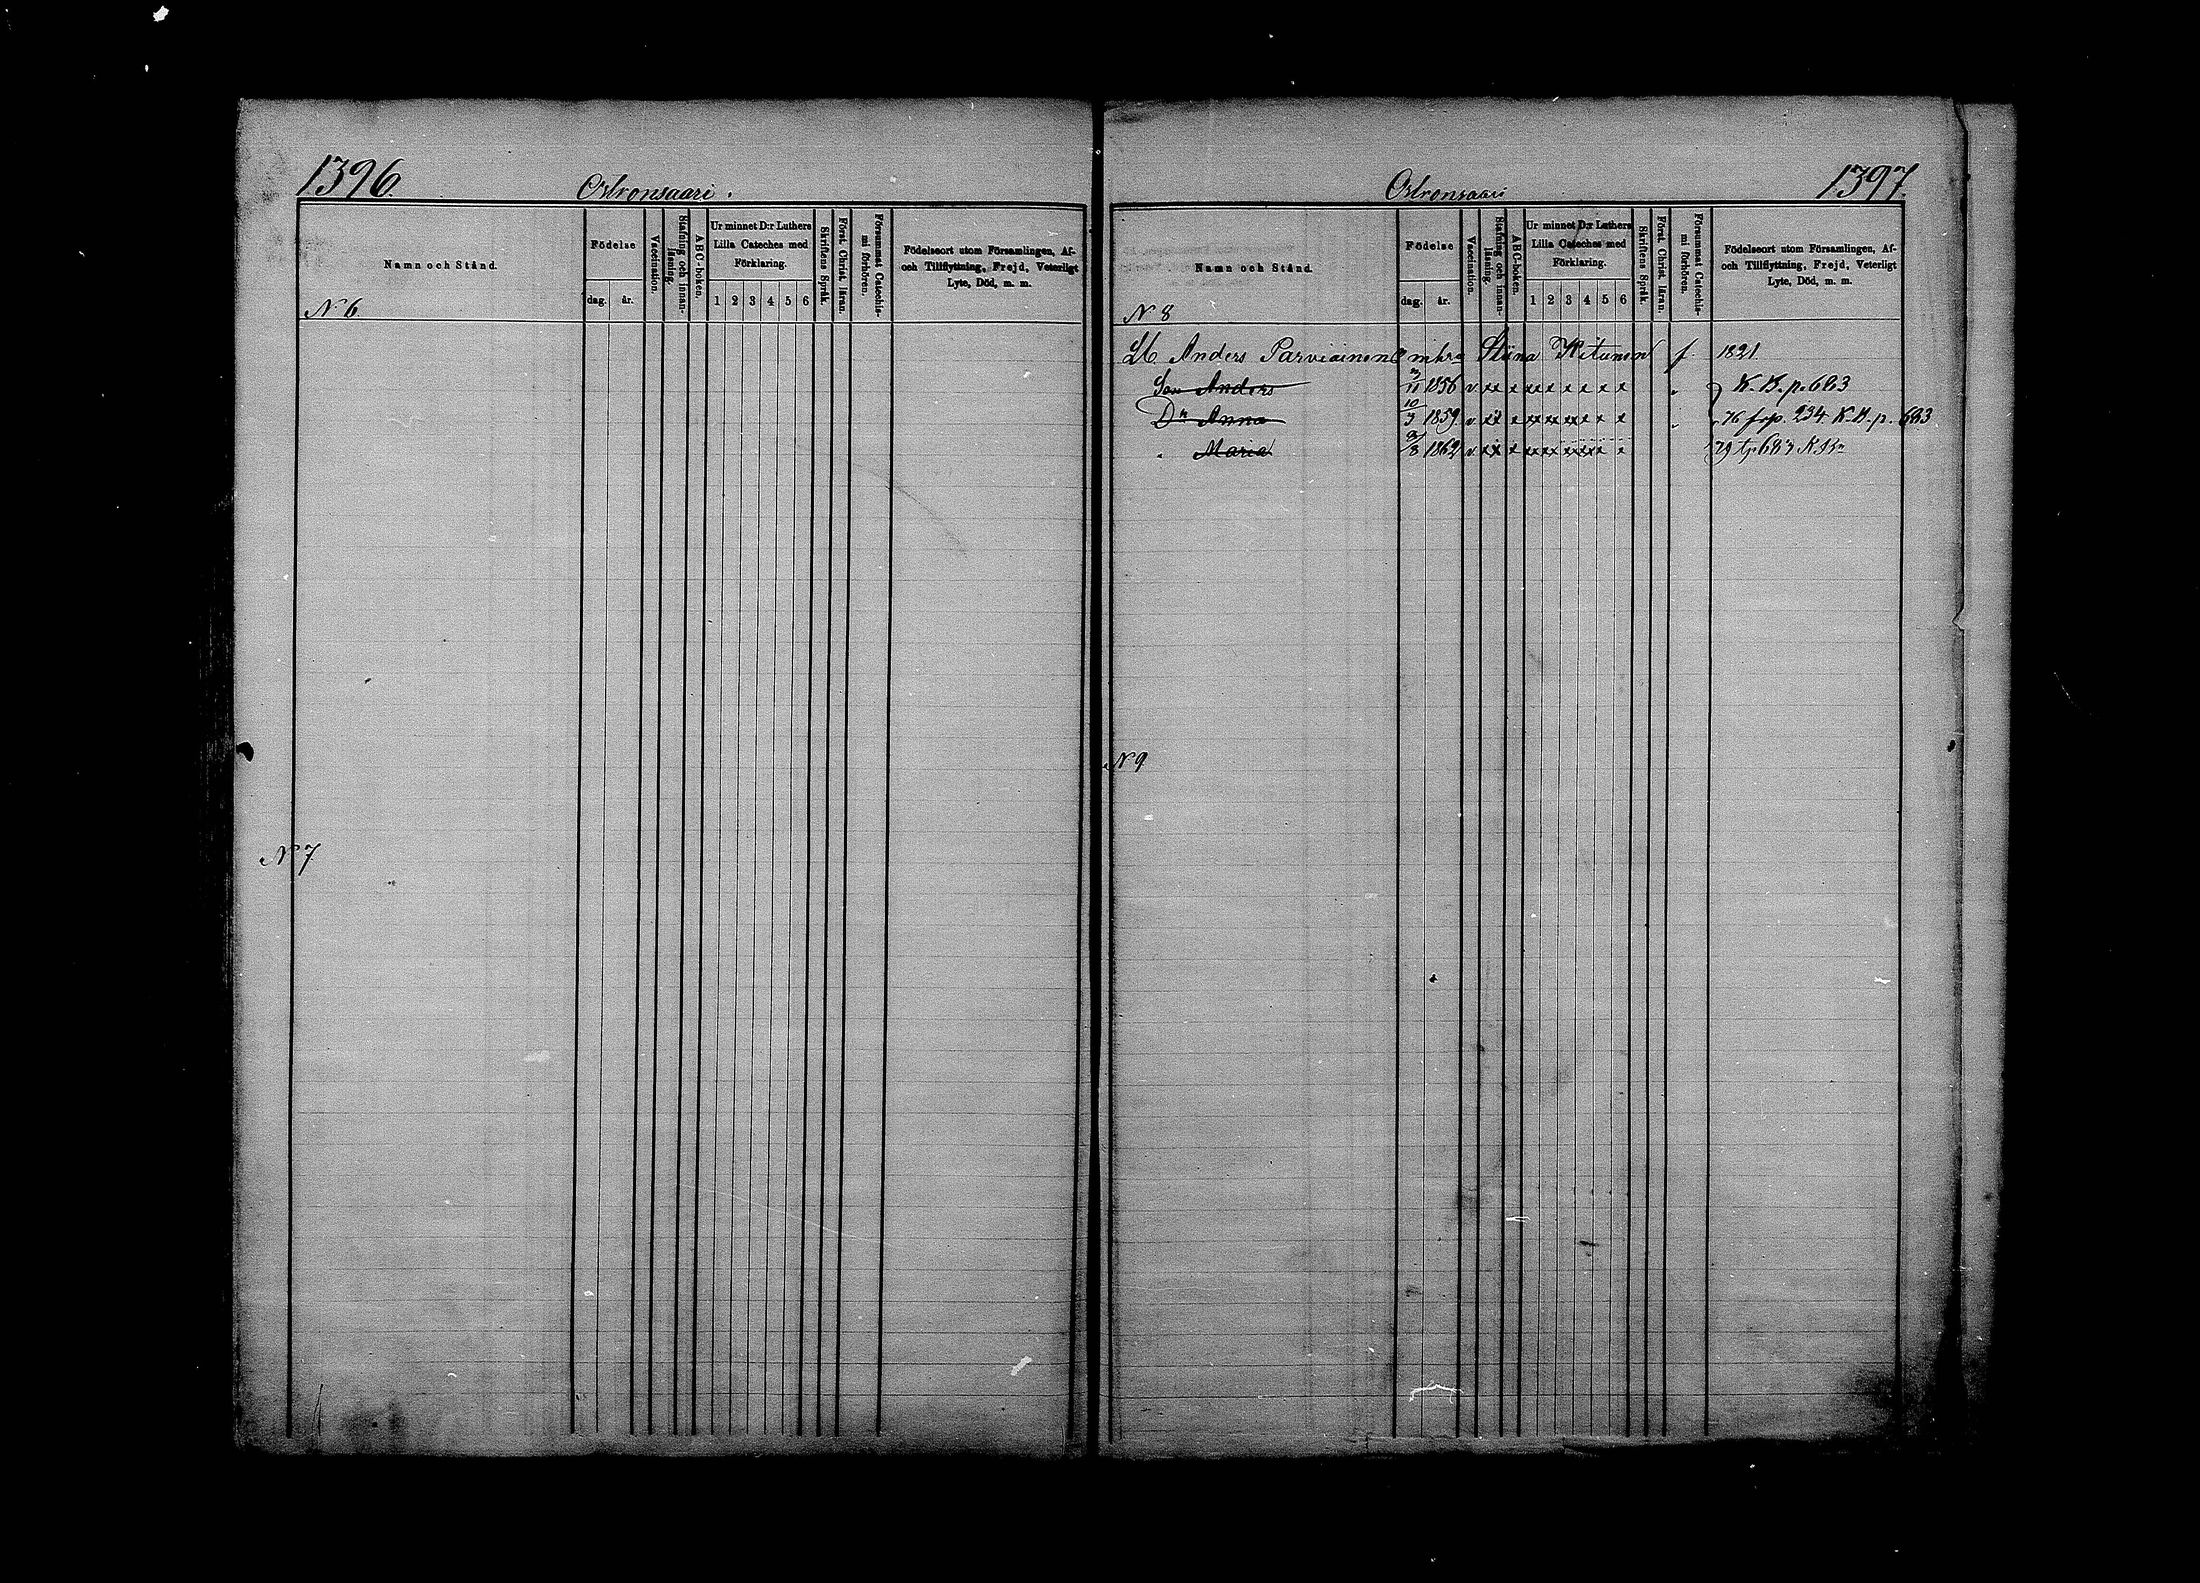 1396.
Ostronsaari.
Namn och Stånd.
Födelse
dag. år.
Vaccination.
Stafning och innan-
läsning.
ABC-boken.
Ur minnet D:r Luthers
Lilla Cateches med
Förklaring.
1 2 3 4 5 6
Skriftens Språk.
Först. Christ. läran.
Försummat Catechis-
mi förhören.
Födelseort utom Församlingen, Af-
och Tillflyttning, Frejd, Veterligt
Lyte, Död, m. m.
N 6.
N 7
1397.
Ostronsaari
Namn och Stånd.
Födelse
dag. år.
Vaccination.
Stafning och innan-
läsning.
ABC-boken.
Ur minnet D:r Luthers
Lilla Cateches med
Förklaring.
1 2 3 4 5 6
Skriftens Språk.
Först. Christ. läran.
Försummat Catechis-
mi förhören.
Födelseort utom Församlingen, Af-
och Tillflyttning, Frejd, Veterligt
Lyte, Död, m. m.
N 8
Anders Parviainens Stina f. 1821
Son Anders 11 1856 v xx x xx x x x x x K. B. p. 683
Dr Anna 10 1859 v xx x xx xx x x x 76 K. B. p. 683
" Maria 8 1862 v xx x xx xx x x x 79 683
N 9